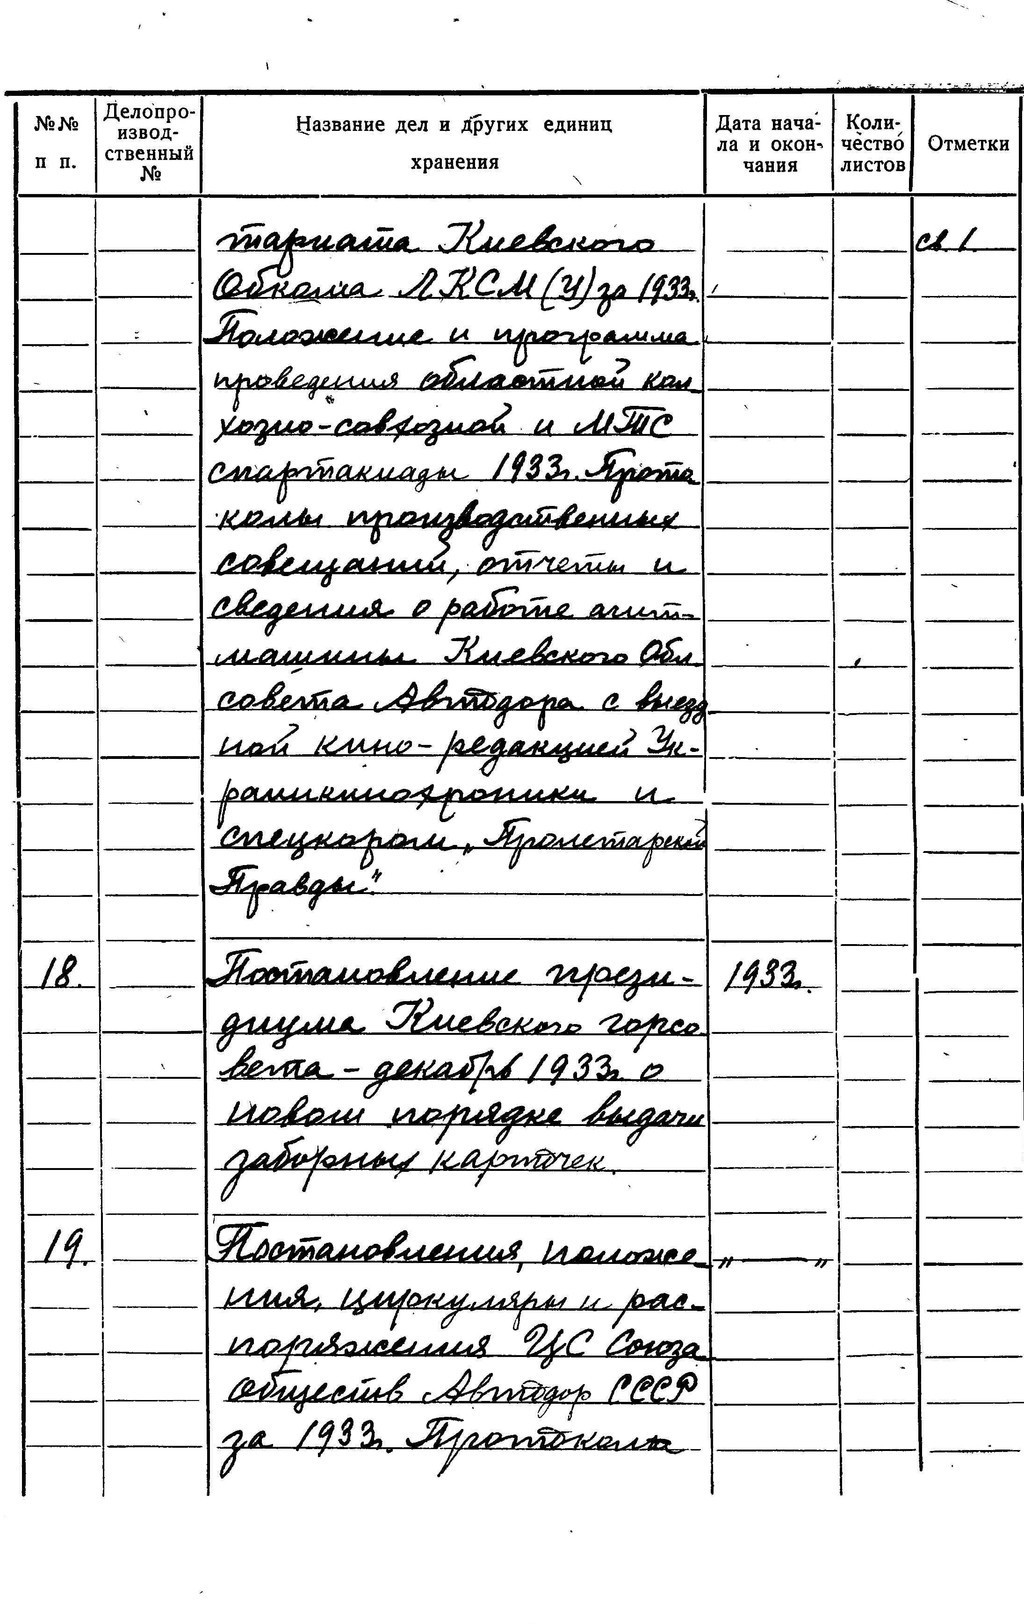 №№ п п.
Делопро-
извод-
ственный
№
Название дел и других единиц
хранения
Дата нача-
ла и окон-
чания
Коли-
чество
листов
Отметки
тариата Киевского св 1.
Обкома ЛКСМ(У) за 1933г.
Положение и программа
проведения областной кол
хозно-совхозной и МТС
спартакиады 1933г. Прото
колы производственных
совещаний, отчеты и
сведения о работе агит-
машины Киевского Обл
совета Автодора с выезд
ной кино-редакцией Ук-
раинкинохроники и
спецкором „Пролетарской
Правды".
18. Постановление прези- 1933г.
диума Киевского горсо
вета - декабрь 1933г. о
новом порядке выдачи
заборных карточек.
19. Постановления, положе „ — "
ния, циркуляры и рас-
поряжения ЦС Союза
обществ Автодор СССР
за 1933г. Протокола